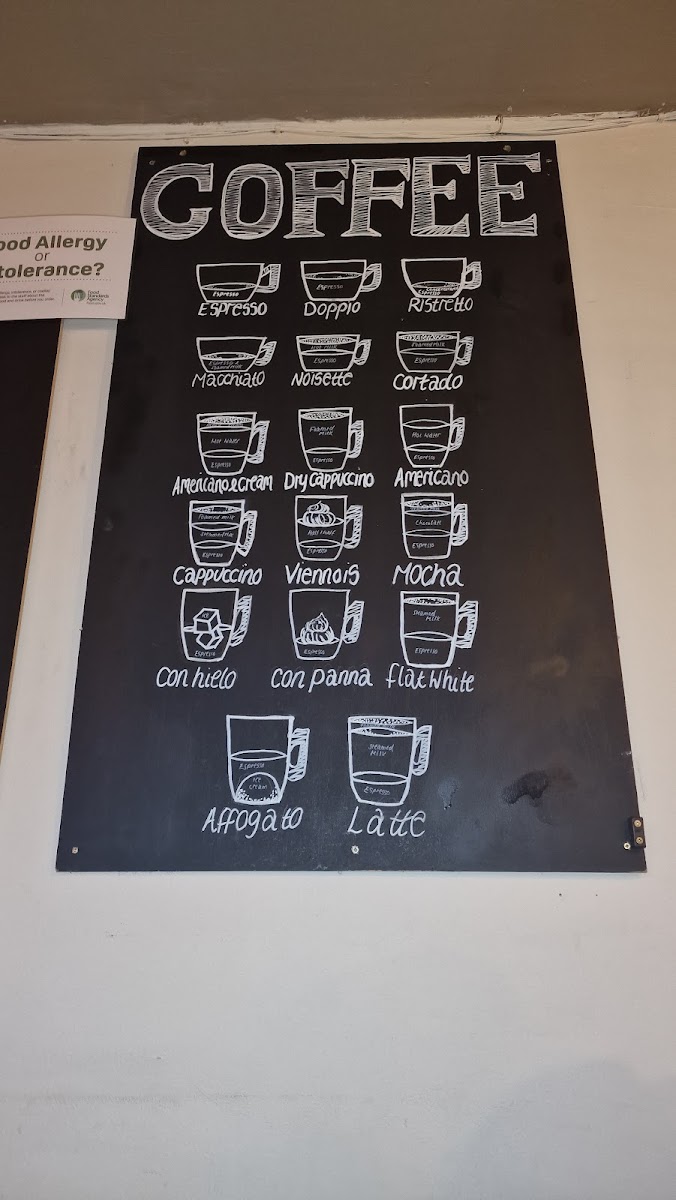 COFFEE
ood Allergy
or
tolerance?
Food
Standards
Agency
Espresso
Espresso
Espresso
Doppio
Espresso
Ristretto
Espresso &
Foamed Milk
Macchiato
Espresso
Noisette
Foamed Milk
Espresso
Cortado
Hot Water
Espresso
Americano & Cream
Foamed
Milk
Espresso
Dry Cappuccino
Hot Water
Espresso
Americano
Foamed Milk
Steamed Milk
Espresso
Cappuccino
Espresso
Viennois
Chocolate
Espresso
Mocha
ICE
Espresso
Con hielo
Espresso
Con panna
Steamed
Milk
Espresso
flat White
Espresso
ICE
Cream
Affogato
Steamed
Milk
Espresso
Latte